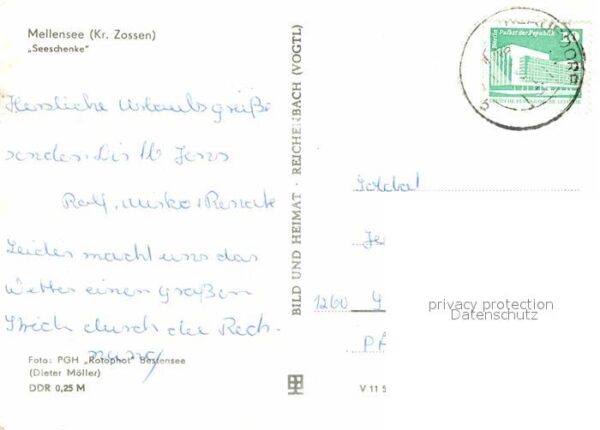 Mellensee (Kr. Zossen)
„Seeschenke"
Herzliche Urlaubsgrüße
senden Dir lb Jens
Ralf, Mirko + Renate
Leider macht uns das
Wetter einen großen
Strich durch die Rech-
nung
Foto: PGH „Rotophot" Bestensee
(Dieter Möller)
DDR 0,25 M
BILD UND HEIMAT · REICHENBACH (VOGTL)
Berlin Palast der Republik
Soldat
Je
1260
privacy protection
Datenschutz
V 11 5